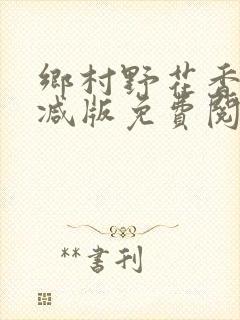 鄉村野花香
減版免費閱
**書刊